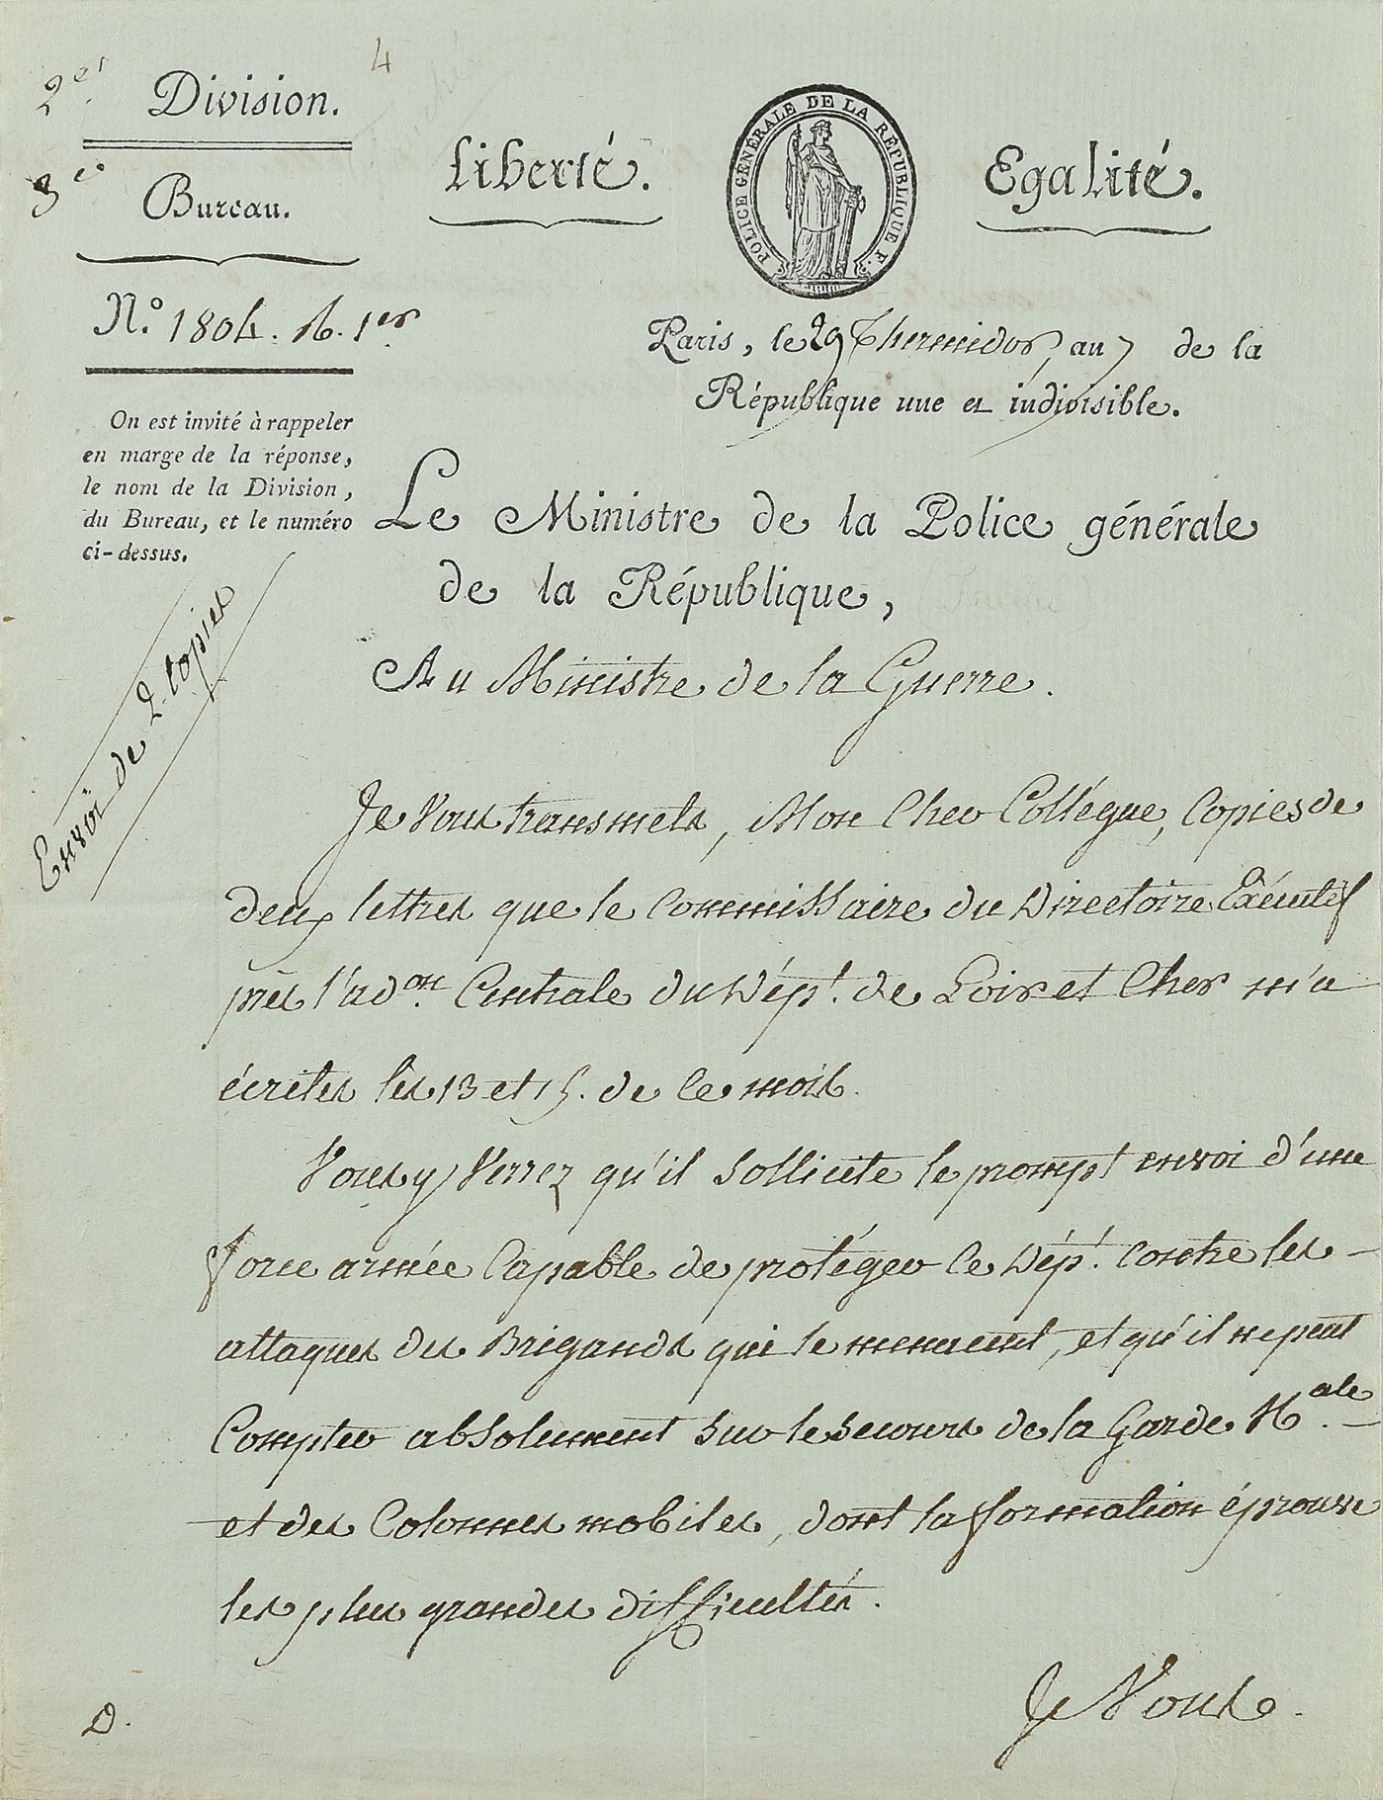 4
2e. Division.
3e. Bureau.
N.º 1804. B. 1er.
On est invité à rappeler
en marge de la réponse,
le nom de la Division,
du Bureau, et le numéro
ci-dessus.
Envoi de 2 copies
Liberté.
POLICE GÉNÉRALE DE LA RÉPUBLIQUE F.
Egalité.
Paris, le 29 Thermidor, an 7 de la
République une et indivisible.
Le Ministre de la Police générale
de la République,
Au Ministre de la Guerre.
Je Vous transmets, Mon Cher Collégue, Copies de
deux lettres que le Commissaire du Directoire Exécutif
près l'adon. Centrale du Dépt. de Loir et Cher m'a
écrites les 13 et 15. de Ce mois.
Vous y Verrez qu'il Sollicite le prompt envoi d'une
force armée Capable de protéger Ce Dépt. Contre les
attaques des Brigands qui le menacent, et qu'il ne peut
Compter absolument Sur le Secours de la Garde Nale.
et des Colonnes mobiles, dont la formation éprouve
les plus grandes difficultés.
Je Vous
D.